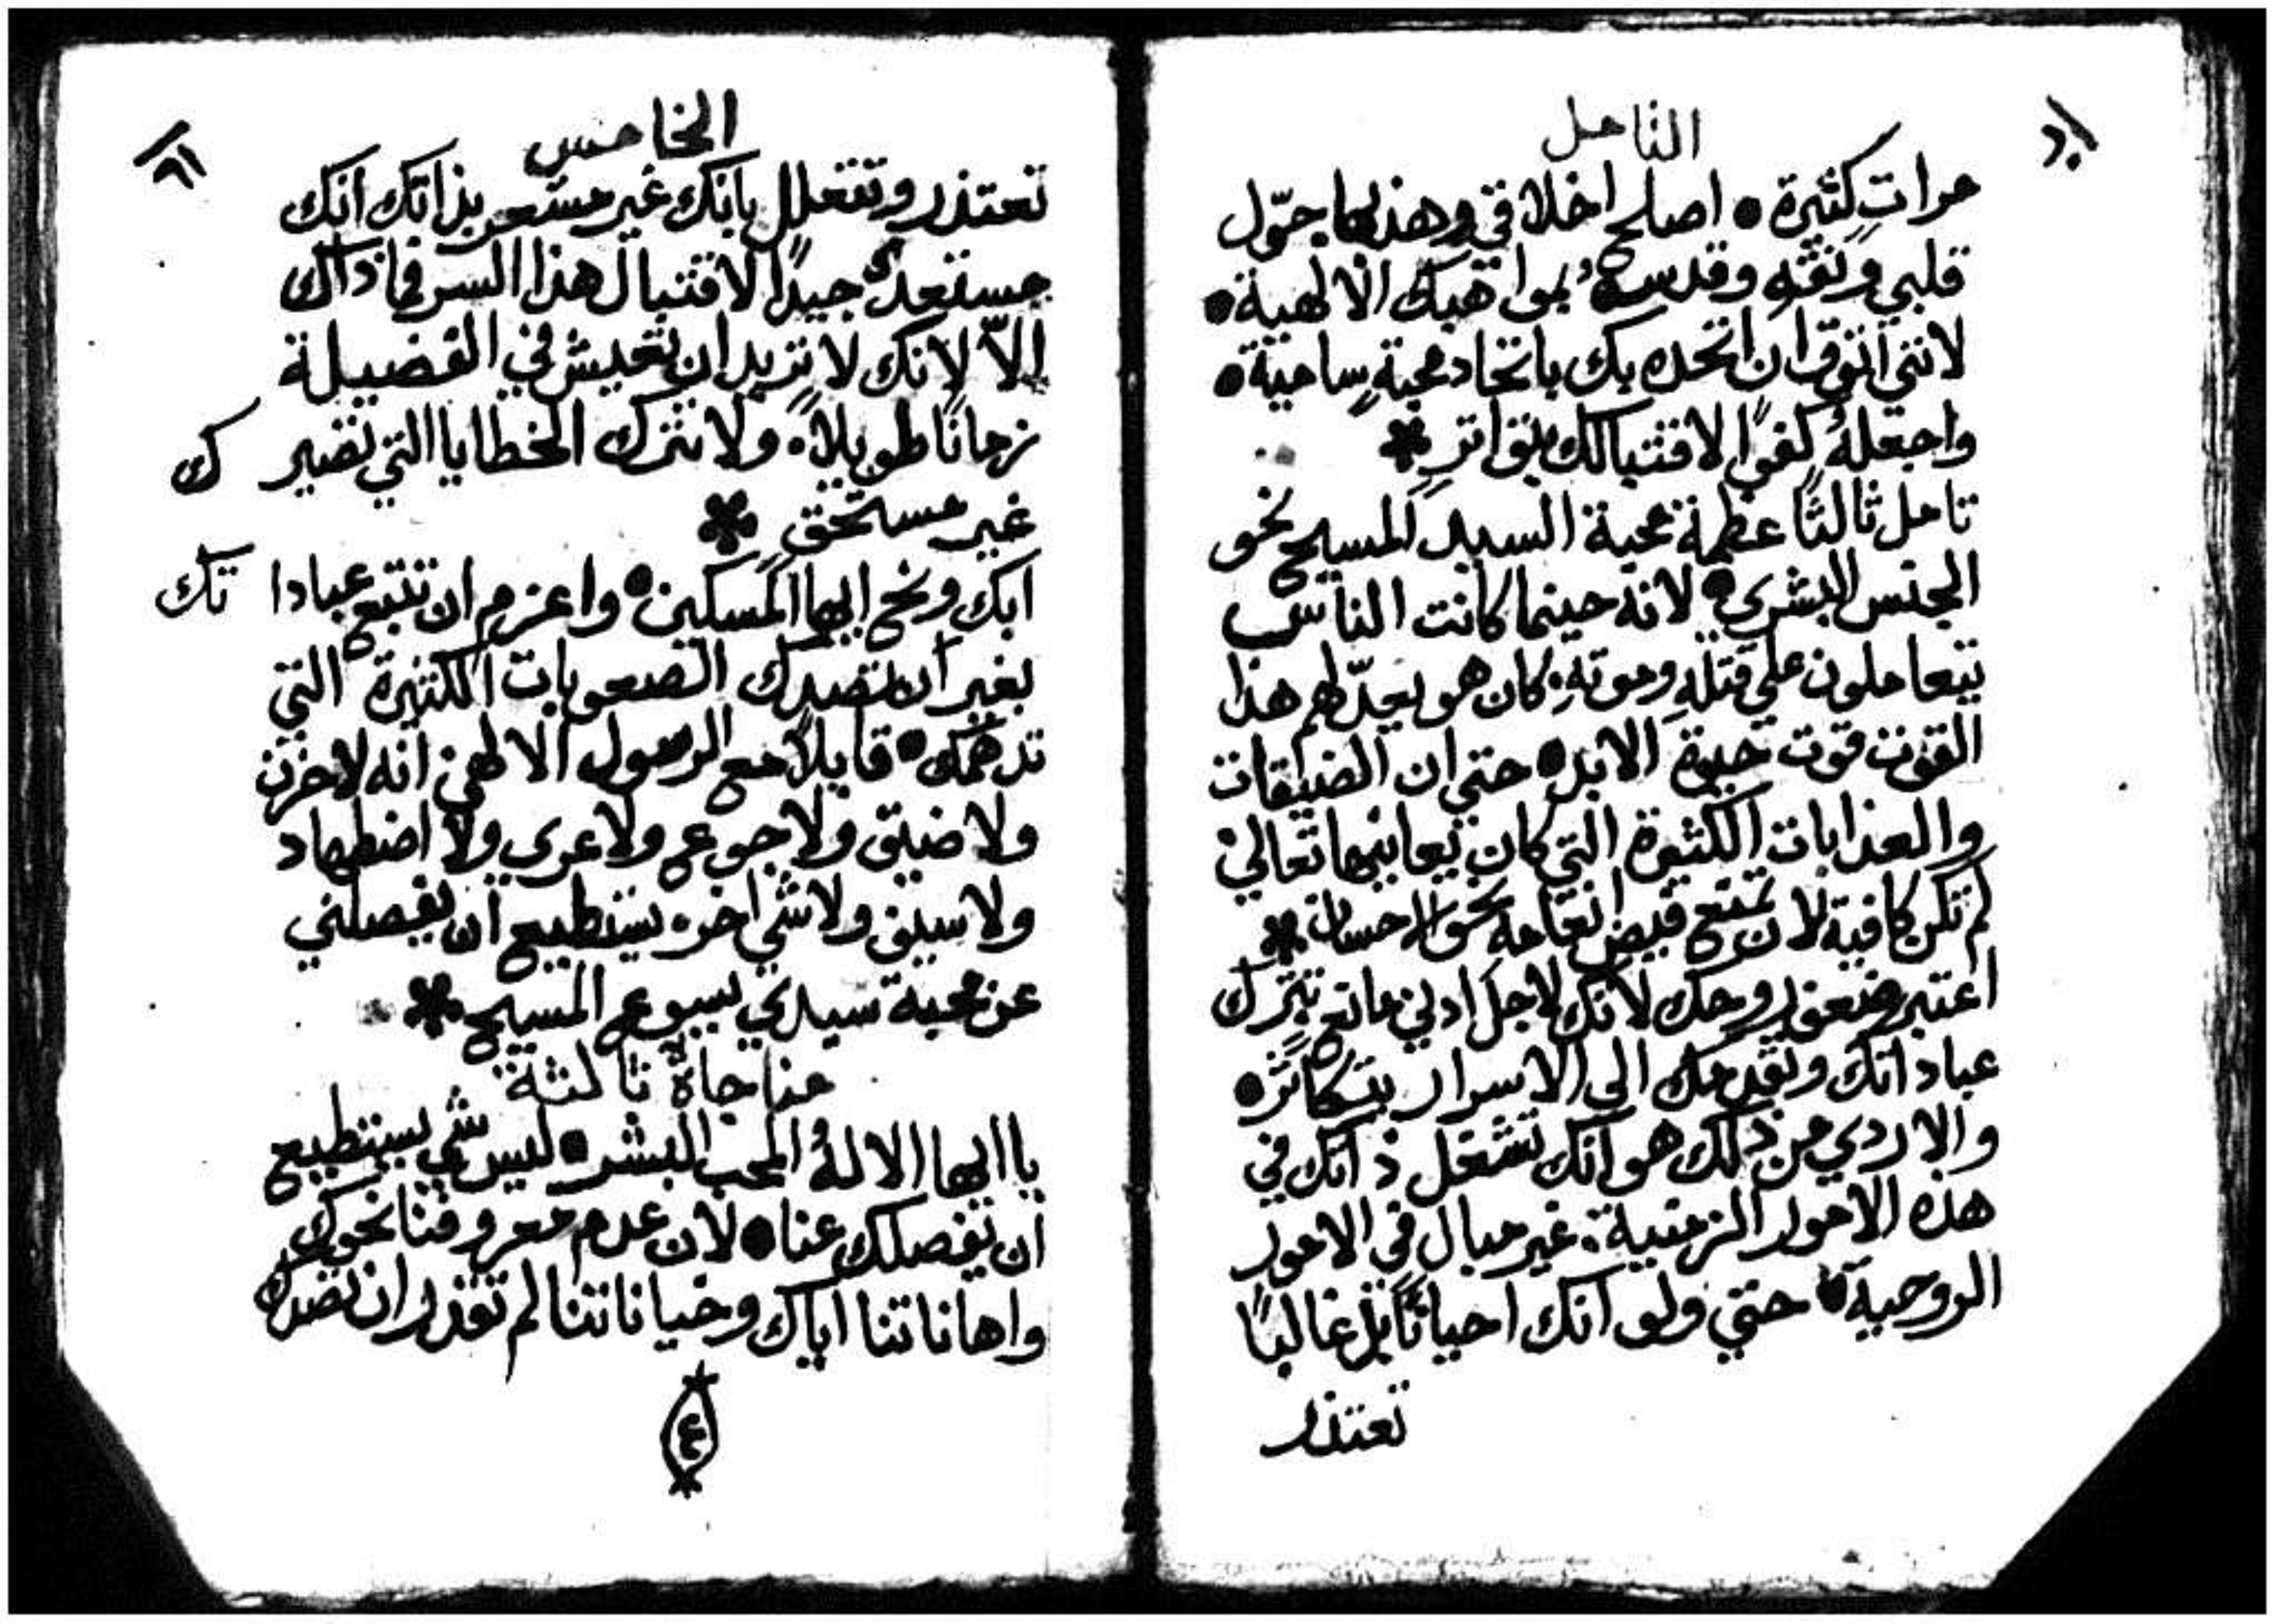 التامل
مراتٍ كثيرة • اصلح اخلاقي وهذبها حوّل
قلبي ونقّهِ وقدسهُ بمواهبك الالهية •
لانني اتوق ان اتحده بك باتحاد محبةٍ سامية •
واجعلهُ كفوًا لاقتبالك بتواترٍ *
تامل ثالثًا عظمة محبة السيد المسيح نحو
الجنس البشري • لانه حينما كانت الناس
يتعاملون علي قتلهِ وموتهِ • كان هو يعدّ لهم هذا
القوت قوت حيوة الابد • حتي ان الضيقات
والعذابات الكثيرة التي كان يعاينها تعالي
لم تكن كافية لان تمنع فيض انعامه نحو الاحسان *
اعتبر ضعف روحك لانك لاجل ادني مانع تترك
عباداتك وتقدمك الي الاسرار بتكاثر •
والاردي من ذلك هو انك تشغل ذاتك في
هذه الامور الزمنية • غير مبال في الامور
الروحية • حتي ولو انك احيانًا بل غالبًا
تعتذر
الخامس
تعتذر وتتعلل بانك غير مستعد بذاتك انك
مستعد جيدًا لاقتبال هذا السر فما ذاك
الاّ لانك لا تريد ان تعيش في الفضيلة
زمانًا طويلاً • ولا تترك الخطايا التي تصيرك
غير مستحق *
ابك ونح ايها المسكين • واعزم ان تتبع عباداتك
بغير ان تصدك الصعوبات الكثيرة التي
تدهمك • قايلاً مع الرسول الالهي انه لا حزن
ولا ضيق ولا جوع ولا عري ولا اضطهاد
ولا سيف ولا شي اخر • يستطيع ان يفصلني
عن محبة سيدي يسوع المسيح *
مناجاة ثالثة
يا ايها الالهُ المحب البشر • ليس شي يستطيع
ان يفصلك عنا • لان عدم معروفنا نحوك
واهاناتنا اياك وخياناتنا لم تقدر ان تصدك
٤